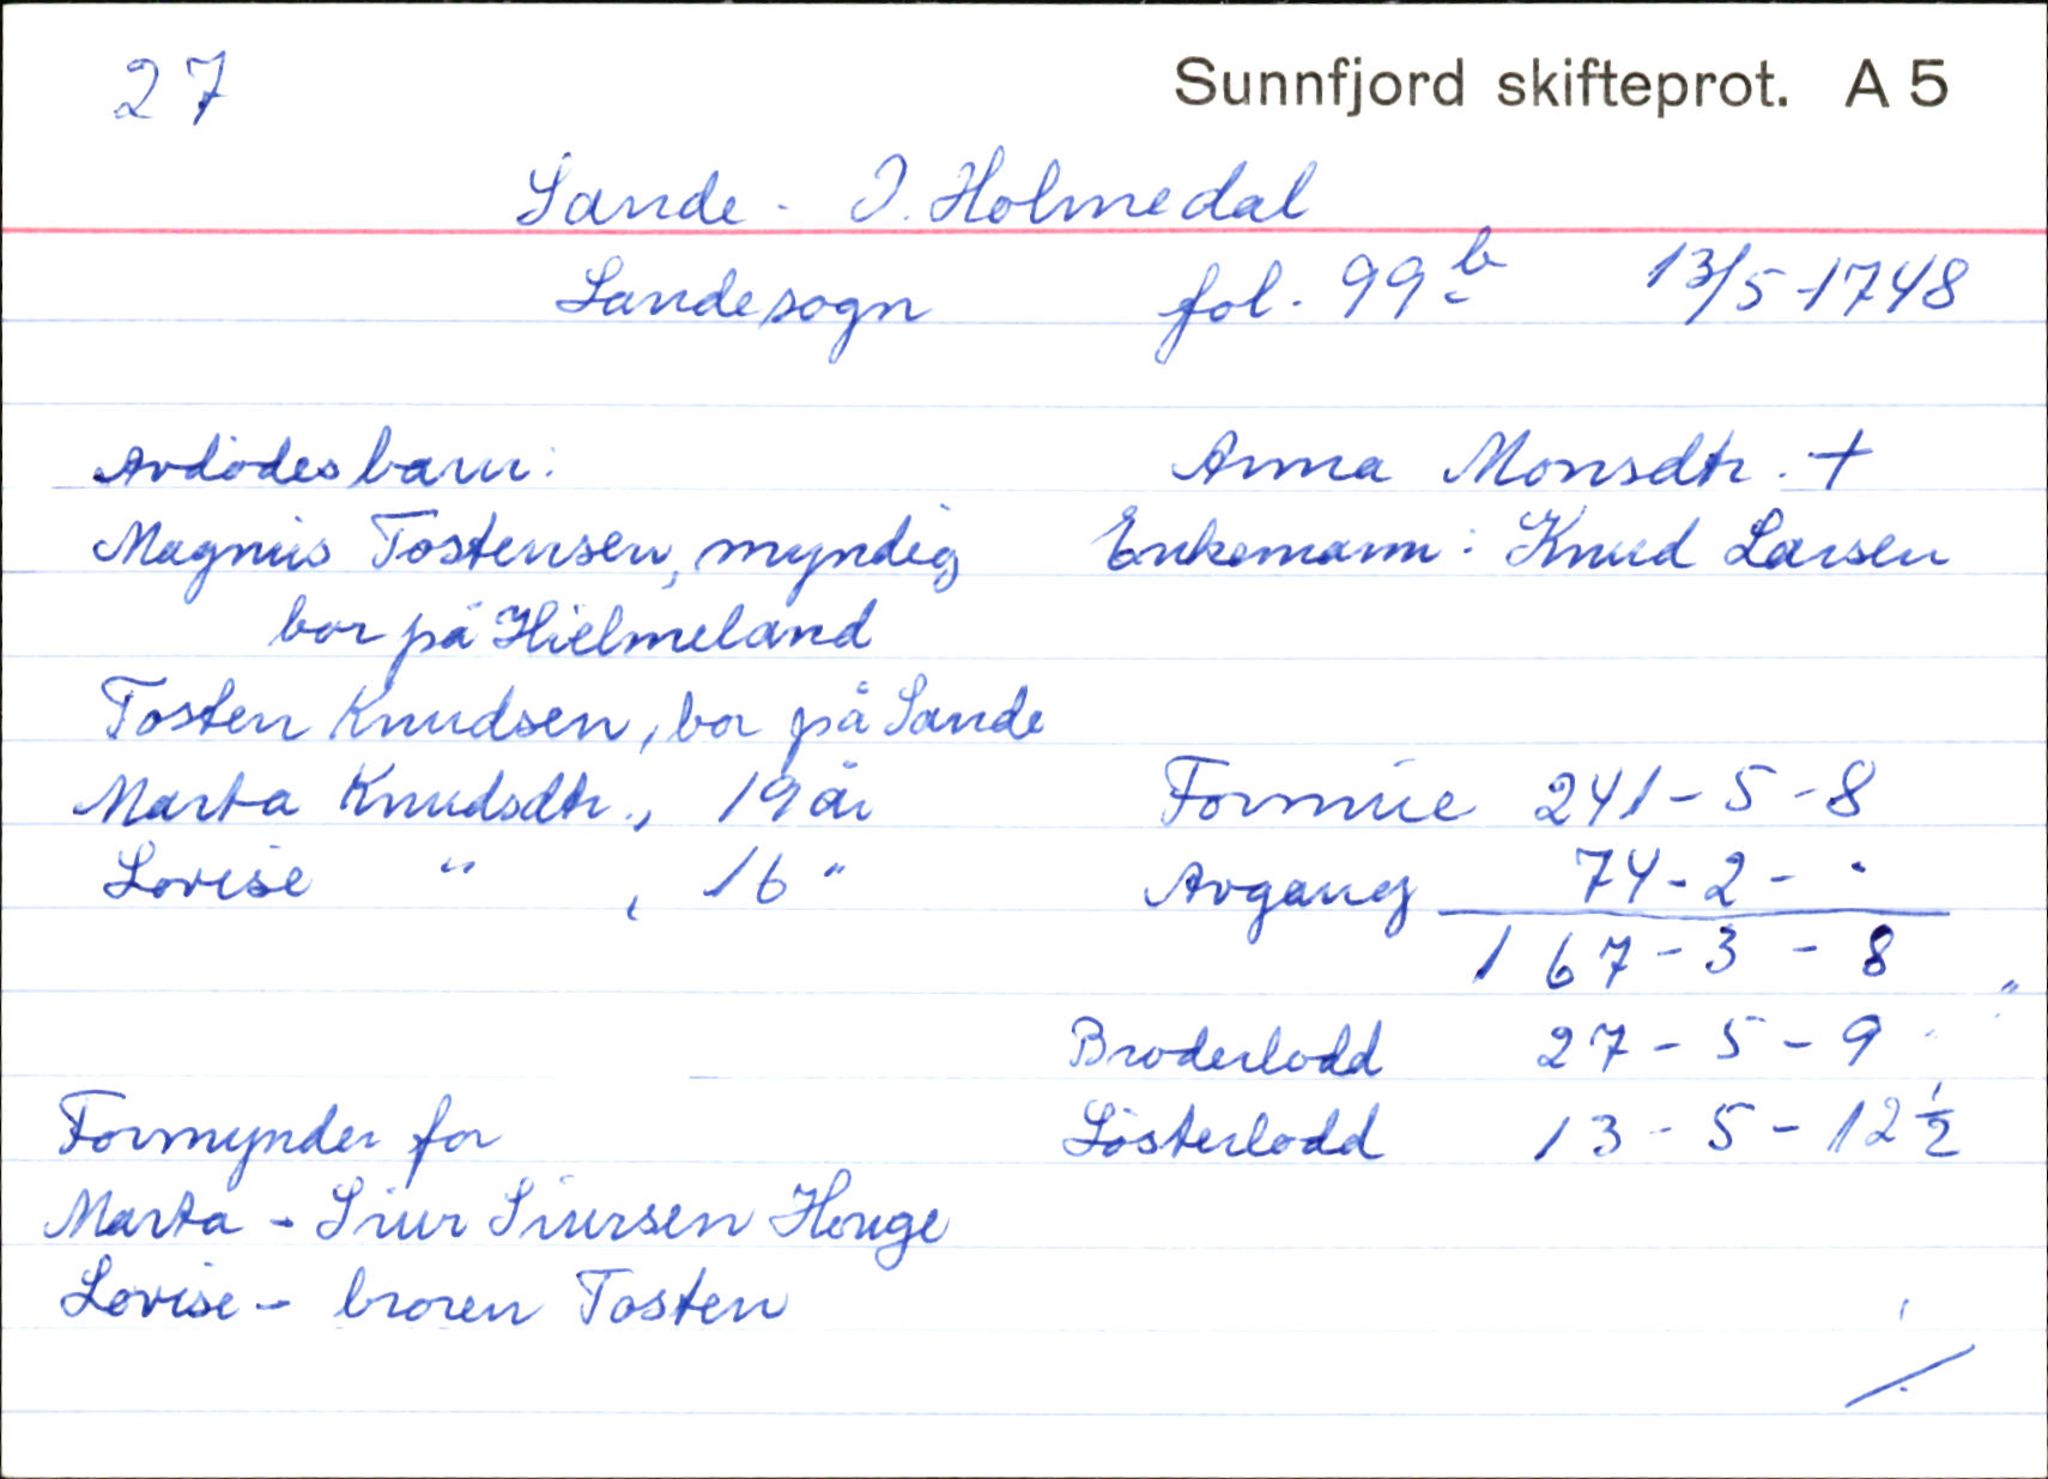 27
Sunnfjord skifteprot. A 5
Sande - I. Holmedal
Sandesogn fol. 99 b 13/5-1748
Avdødes barn:
Magnus Tostensen, myndig
bor på Hielmeland
Tosten Knudsen, bor på Sande
Marta Knudsdtr., 19 år
Lovise " , 16 "
Anna Monsdtr. +
Enkemann: Knud Larsen
Formue 241-5-8
Avgang 74-2-·
167-3-8
Broderlodd 27-5-9
Søsterlodd 13-5-12 1/2
Formynder for
Marta - Siur Siursen Houge
Lovise - broren Tosten